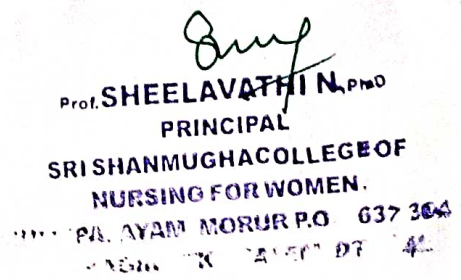 Prof. SHEELAVATHI N, PhD
PRINCIPAL
SRI SHANMUGHA COLLEGE OF
NURSING FOR WOMEN.
MORUR P.O 637 304